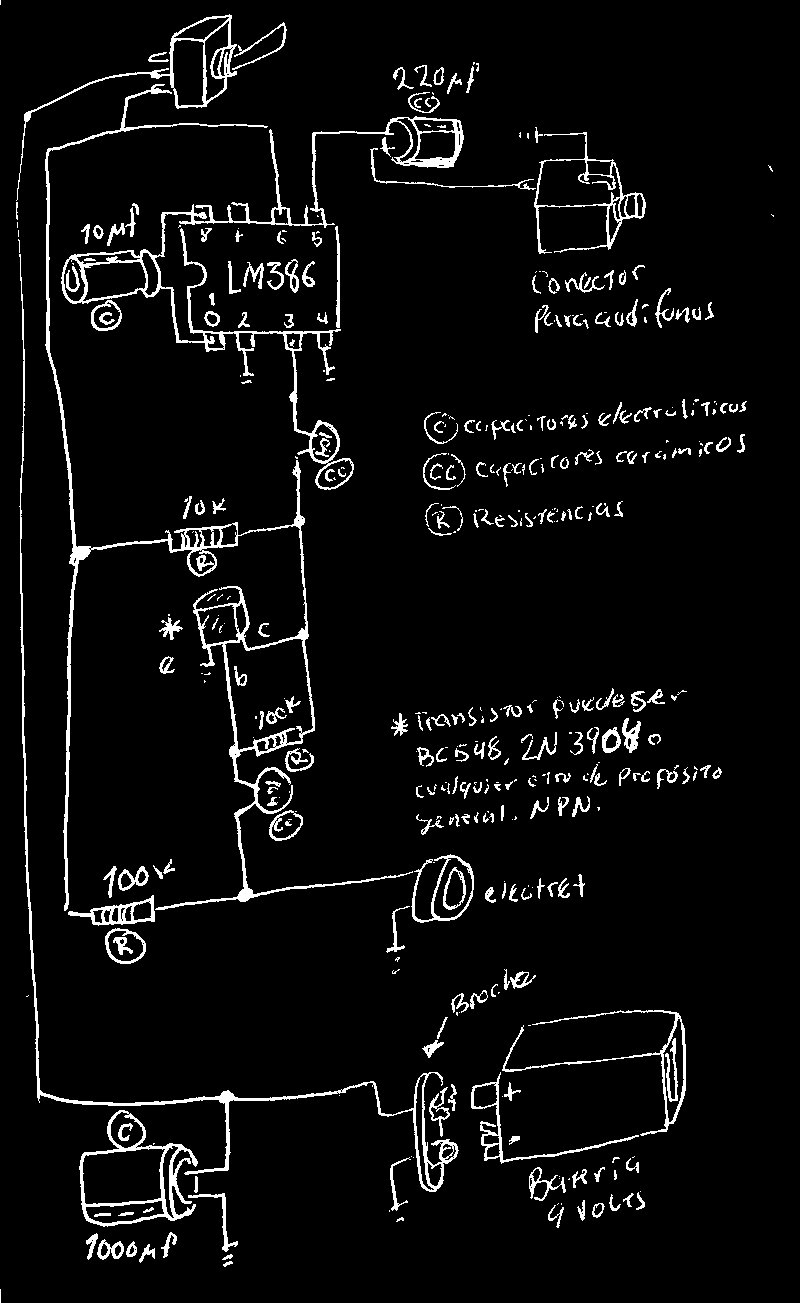 220µf
CC
10µf
C
8 7 6 5
LM386
1 2 3 4
Conector
Para audífonos
CC
C capacitores electrolíticos
CC capacitores cerámicos
R Resistencias
10K
R
*
e
c
b
100K
R
CC
* Transistor puede ser
BC548, 2N3904 o
cualquier otro de propósito
general. NPN.
100K
R
electret
Broche
+
-
Batería
9 Volts
C
1000µf